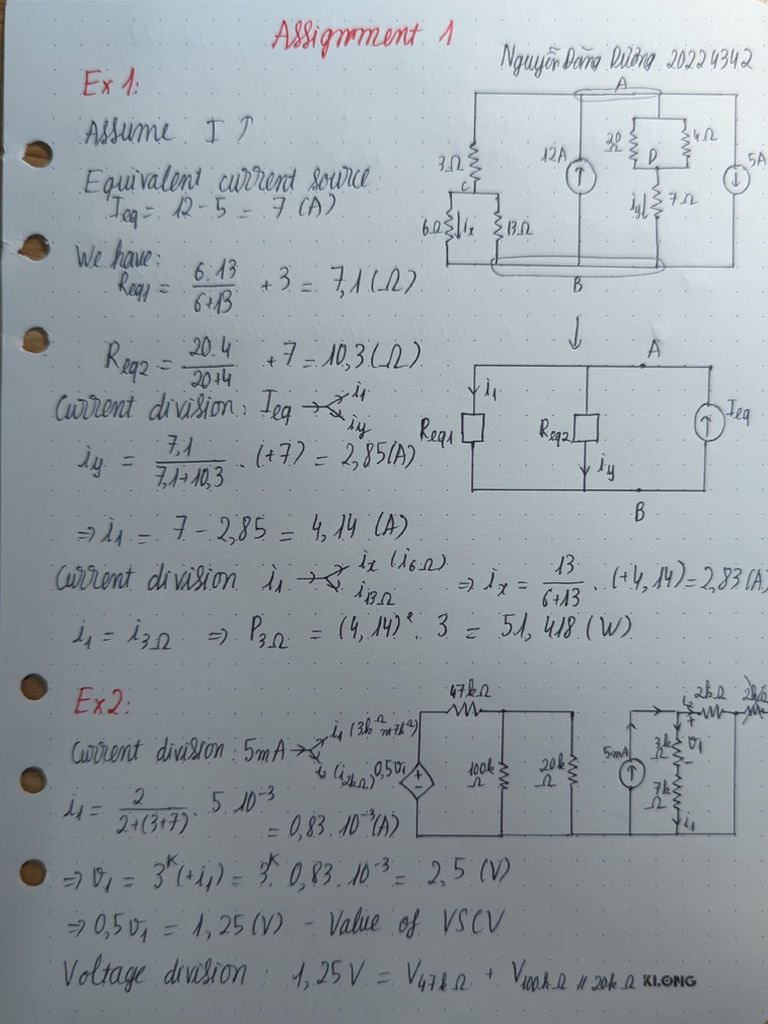 Assignment 1
Nguyễn Đăng Dương 20224342
Ex 1:
Assume I ↑
Equivalent current source:
Ieq = 12 - 5 = 7 (A)
We have:
Req1 = 6.13/6+13 + 3 = 7,1 (Ω)
Req2 = 20.4/20+4 + 7 = 10,3 (Ω)
Current division: Ieq → i1 iy
iy = 7,1/7,1+10,3 . (+7) = 2,85(A)
⇒ i1 = 7 - 2,85 = 4,14 (A)
Current division i1 → ix (i6Ω) i13Ω ⇒ ix = 13/6+13 . (+4,14) = 2,83(A)
i1 = i3Ω ⇒ P3Ω = (4,14)² . 3 = 51,418 (W)
A
3Ω
12A
20Ω
4Ω
5A
C
D
6Ω
ix
13Ω
iy
7Ω
B
A
i1
Req1
Req2
Ieq
iy
B
Ex2:
Current division: 5mA → i1 (3kΩ nt 7kΩ) i2 (i2kΩ)
i1 = 2/2+(3+7) . 5.10⁻³ = 0,83.10⁻³(A)
⇒ υ1 = 3ᴷ(+i1) = 3ᴷ.0,83.10⁻³ = 2,5 (V)
⇒ 0,5υ1 = 1,25(V) - Value of VSCV
Voltage division: 1,25V = V47kΩ + V100kΩ // 20kΩ
47kΩ
0,5υ1
100kΩ
20kΩ
5mA
2kΩ
3kΩ
υ1
7kΩ
i1
KLONG